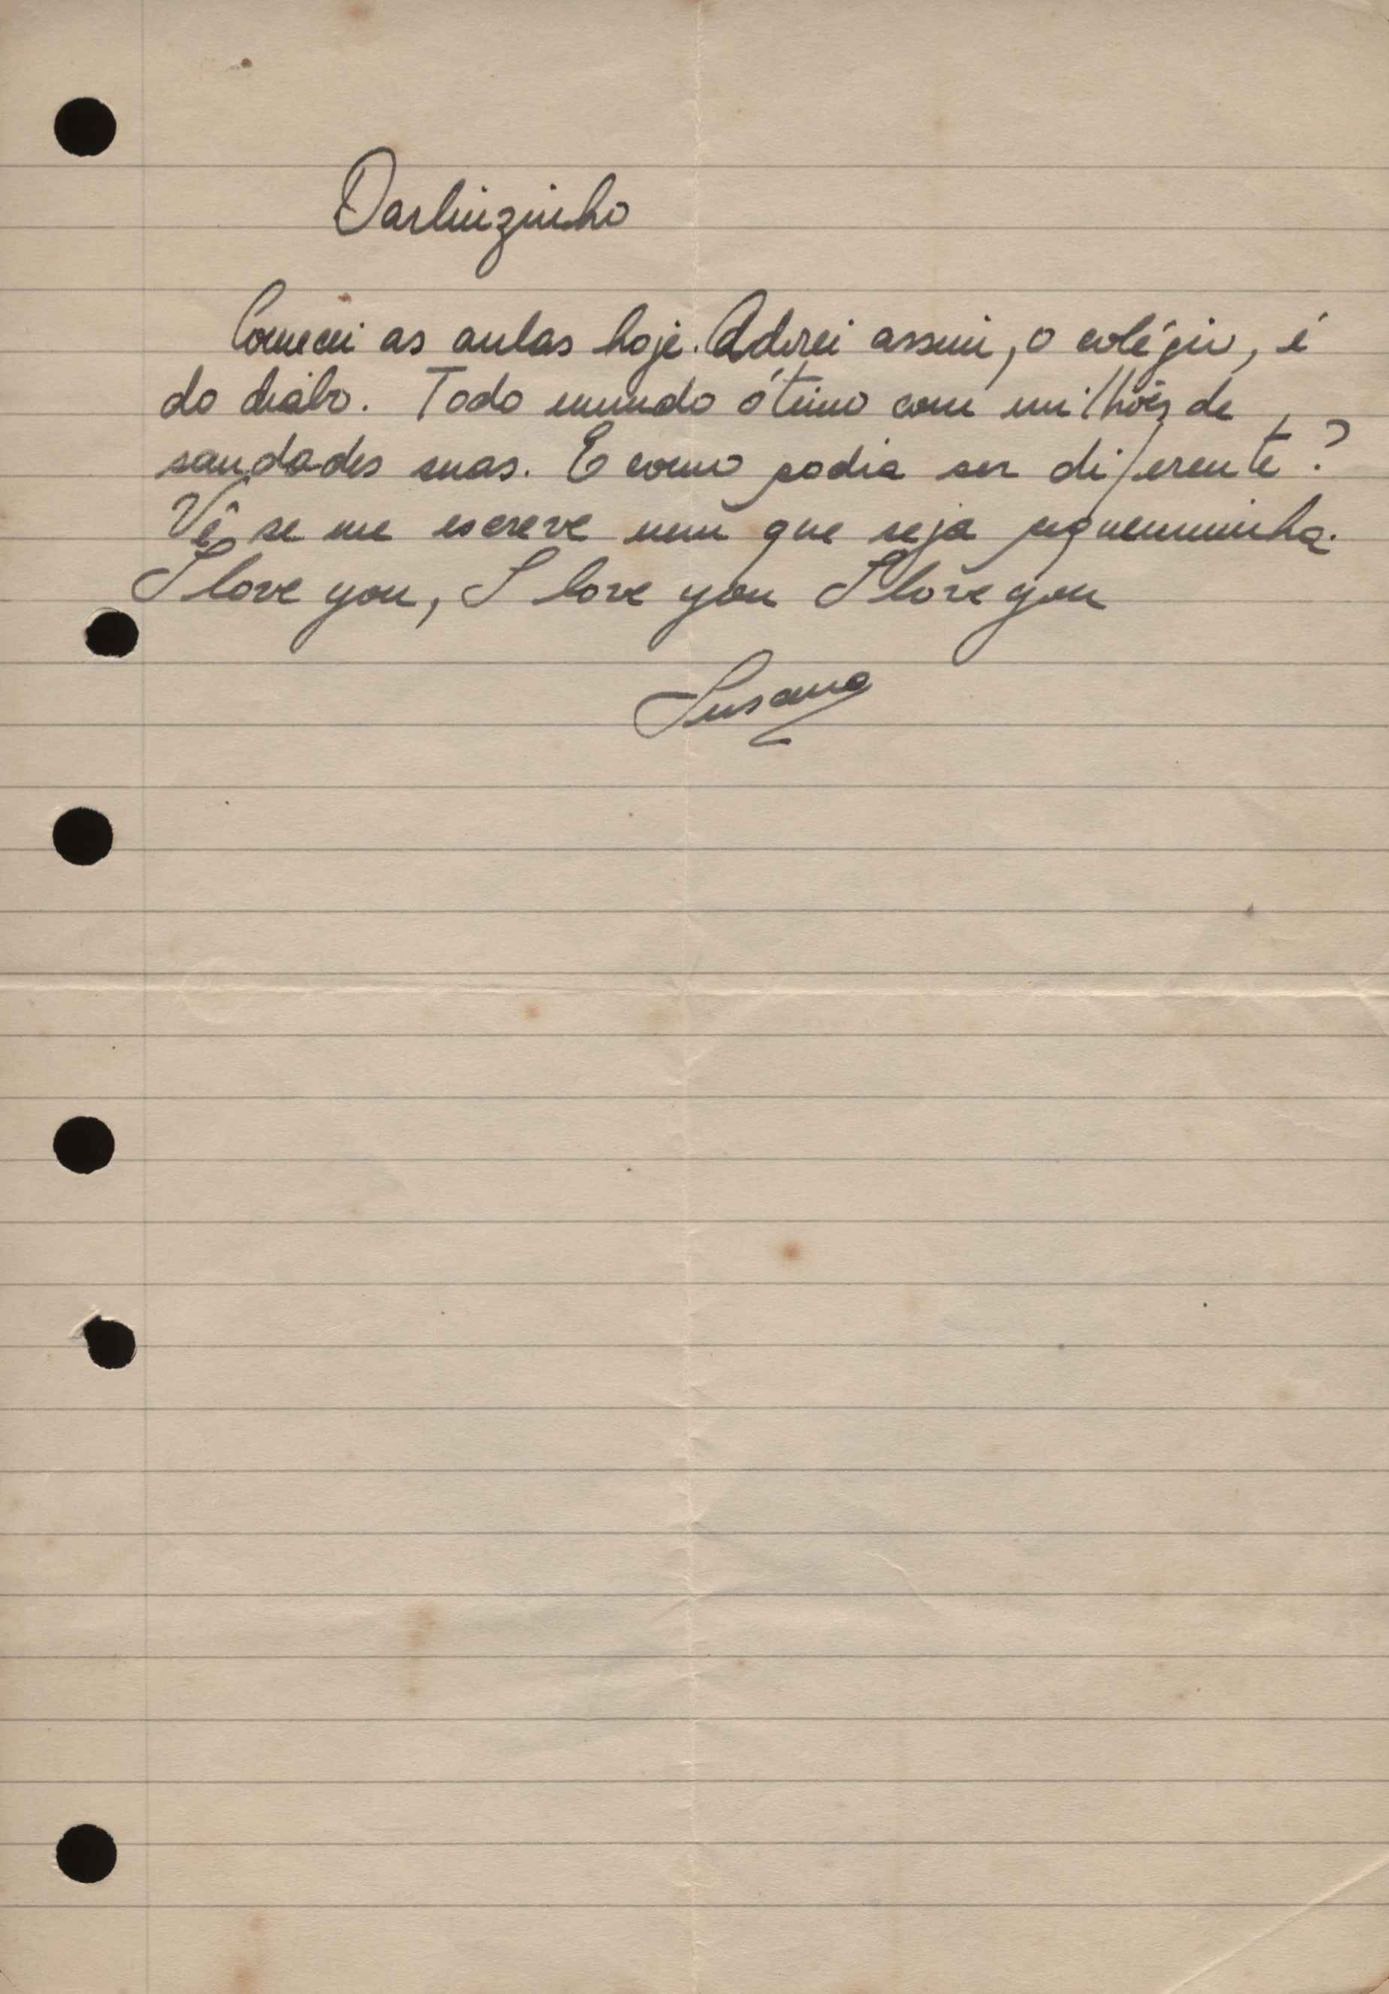 Darlinzinho
Comecei as aulas hoje. Adorei assim, o colégio, é
do diabo. Todo mundo ótimo com milhões de
saudades suas. E como podia ser diferente?
Vê se me escreve nem que seja pequenininha.
I love you, I love you I love you
Susana